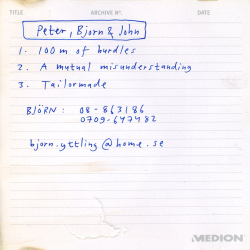 TITLE
ARCHIVE Nº.
DATE
Peter, Bjorn & John
1. 100 m of hurdles
2. A mutual misunderstanding
3. Tailormade
BJÖRN: 08-863186
0709-647482
bjorn.yttling@home.se
MEDION